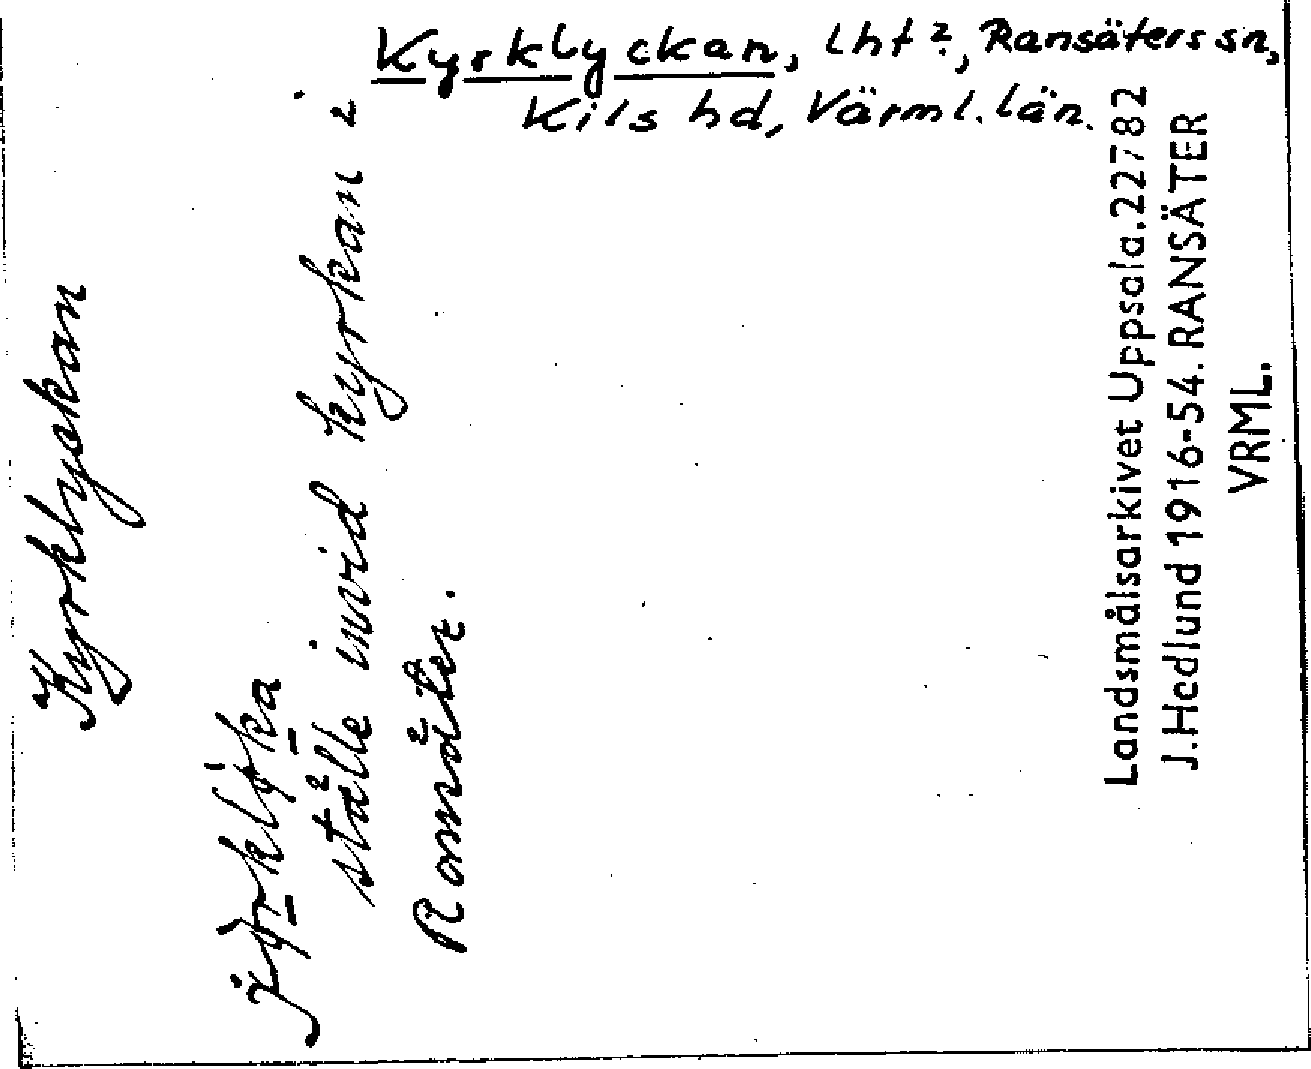 Kyrklyckan, lht?, Ransäters sn,
Kils hd, Värml. län.
Kyrklyckan
ställe invid kyrkan i
Ransäter.
Landsmålsarkivet Uppsala.22782
J.Hedlund 1916-54. RANSÄTER
VRML.